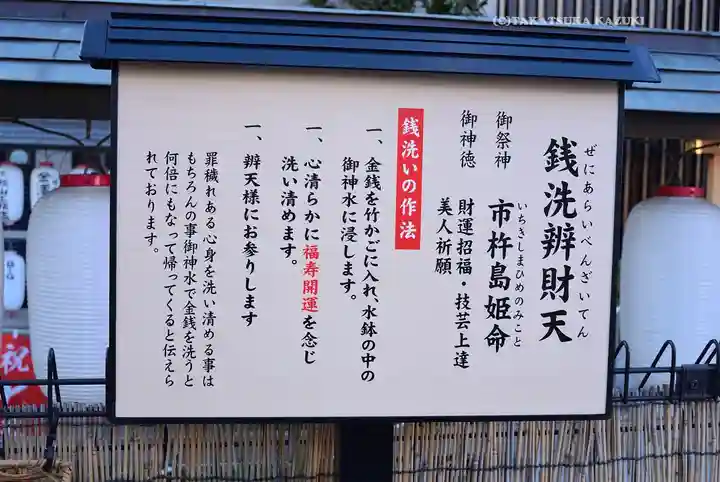 (C)TAKATSUKA KAZUKI
ぜにあらいべんざいてん
銭洗辨財天
御祭神
いちきしまひめのみこと
市杵島姫命
御神徳
財運招福・技芸上達
美人祈願
銭洗いの作法
一、金銭を竹かごに入れ、水鉢の中の
御神水に浸します。
一、心清らかに福寿開運を念じ
洗い清めます。
一、辨天様にお参りします
罪穢れある心身を洗い清める事は
もちろんの事御神水で金銭を洗うと
何倍にもなって帰ってくると伝えら
れております。
祝